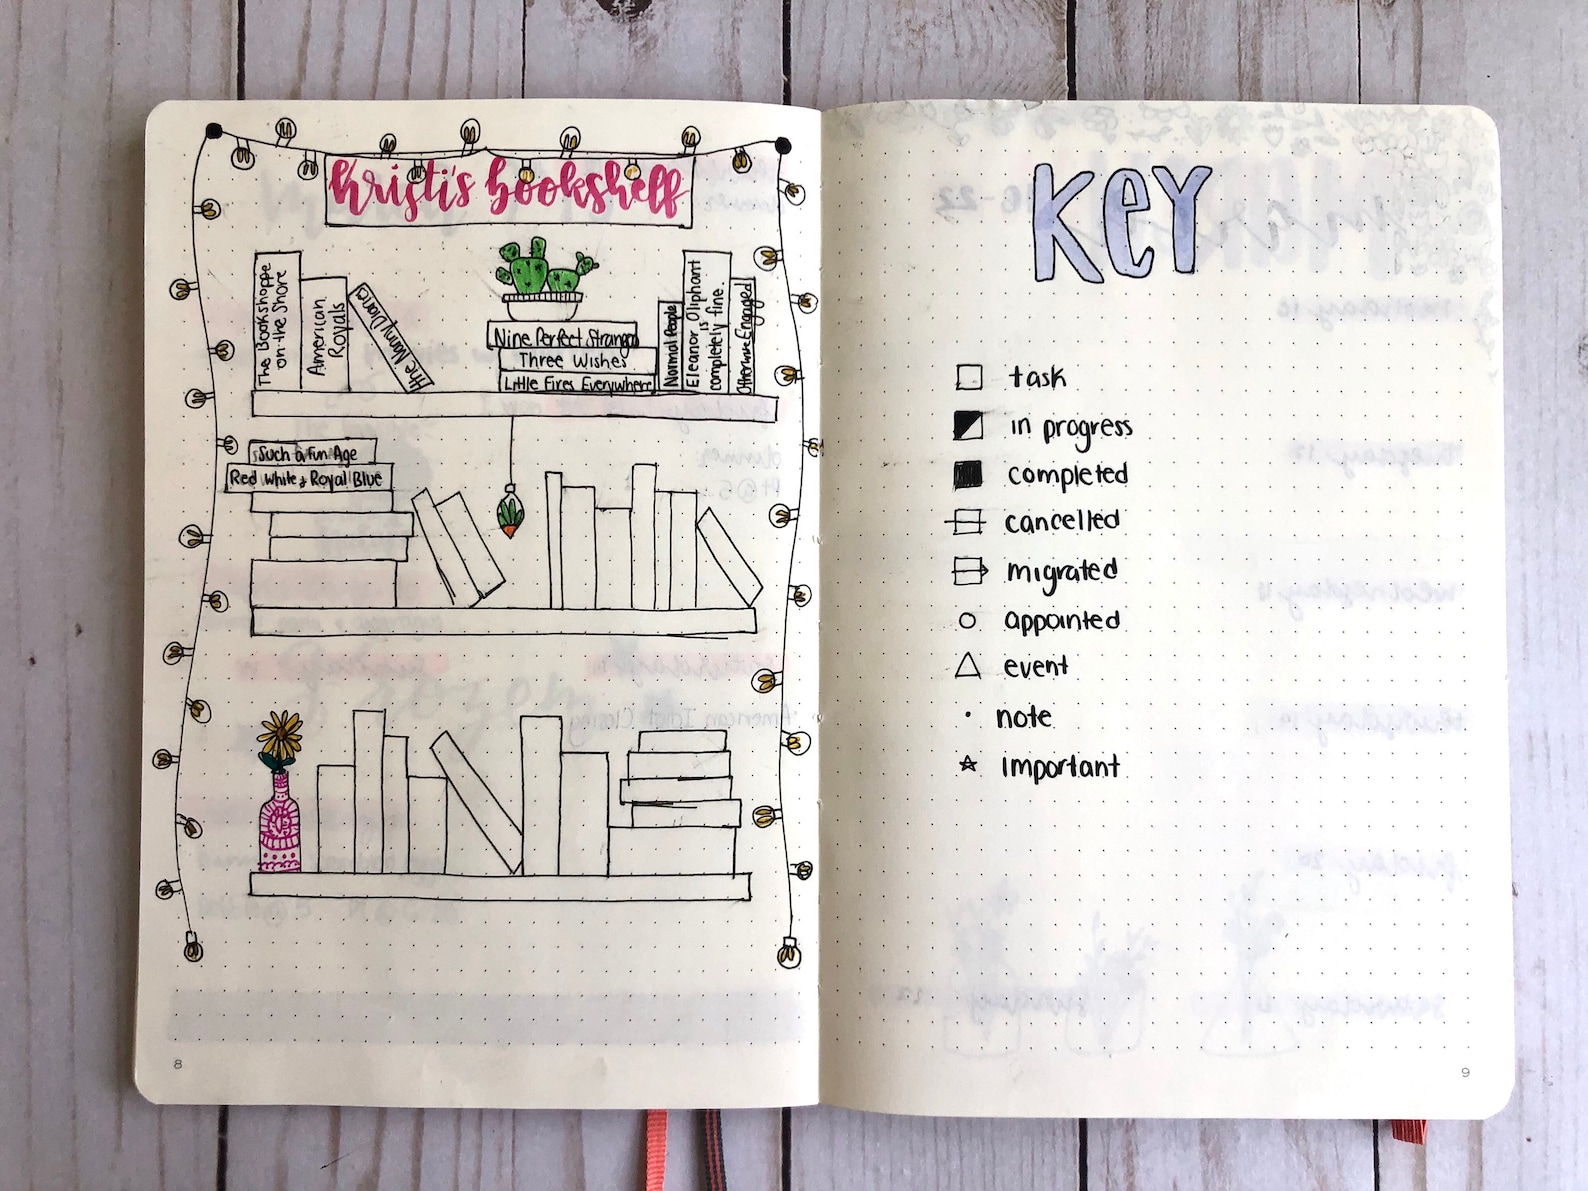 kristi's bookshelf
The Bookshoppe
on the Shore
American
Royals
the Nanny Diaries
Nine Perfect Strangers
Three Wishes
Little Fires Everywhere
Normal People
Eleanor Oliphant
is
completely fine.
Otherwise Engaged
Such a Fun Age
Red White & Royal Blue
8
KEY
task
in progress
completed
cancelled
migrated
appointed
event
note
important
9